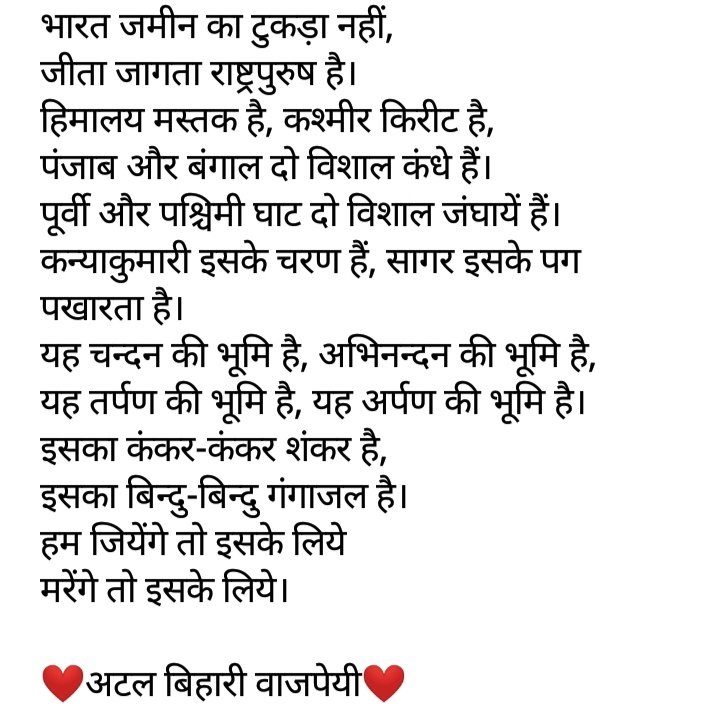 भारत जमीन का टुकड़ा नहीं,
जीता जागता राष्ट्रपुरुष है।
हिमालय मस्तक है, कश्मीर किरीट है,
पंजाब और बंगाल दो विशाल कंधे हैं।
पूर्वी और पश्चिमी घाट दो विशाल जंघायें हैं।
कन्याकुमारी इसके चरण हैं, सागर इसके पग
पखारता है।
यह चन्दन की भूमि है, अभिनन्दन की भूमि है,
यह तर्पण की भूमि है, यह अर्पण की भूमि है।
इसका कंकर-कंकर शंकर है,
इसका बिन्दु-बिन्दु गंगाजल है।
हम जियेंगे तो इसके लिये
मरेंगे तो इसके लिये।
❤️अटल बिहारी वाजपेयी❤️